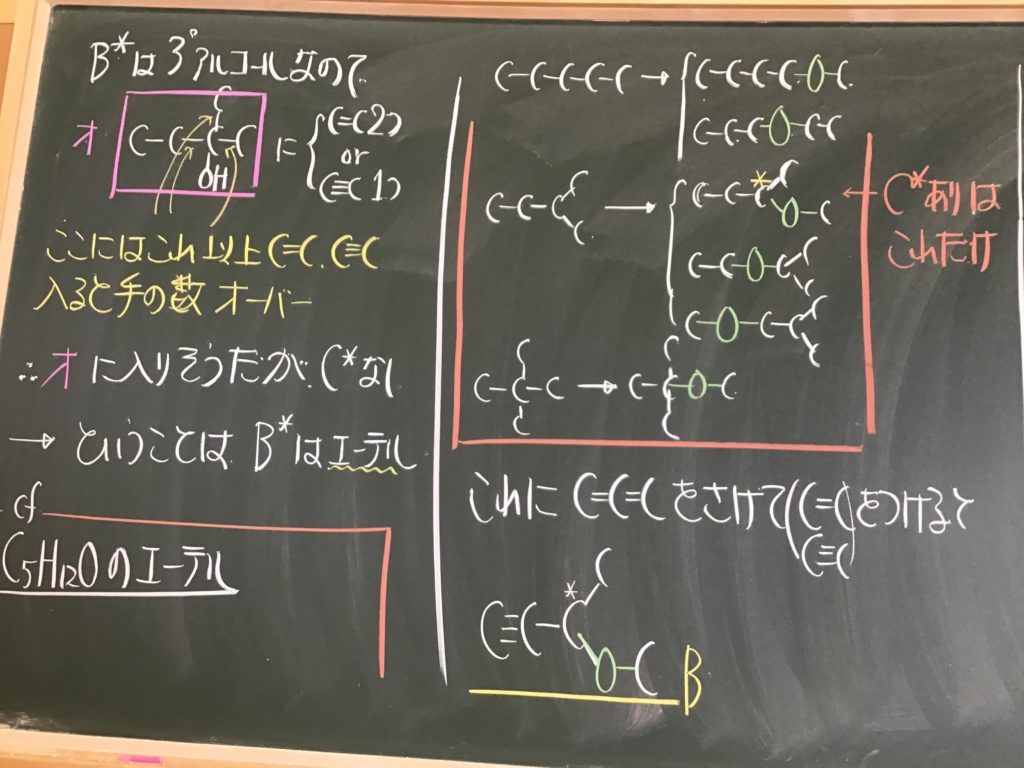 B*は3°アルコールなので
オ
C-C-C-C
C
OH
に
C=C 2コ
or
C≡C 1コ
ここにはこれ以上C=C、C≡C
入ると手の数オーバー
∴オに入りそうだが、C*なし
→ ということは B*はエーテル
cf
C5H12Oのエーテル
C-C-C-C-C → C-C-C-C-O-C
C-C-C-O-C-C
C-C-C
C
C
→
C-C-C*
C
O-C
C-C-O-C
C
C
C-O-C-C
C
C
C-C-C
C
C
→
C-C-O-C
C
C
← C*ありは
これだけ
これにC=C=Cをさけて(C=C
C≡C)をつけると
C≡C-C*
C
O-C
B